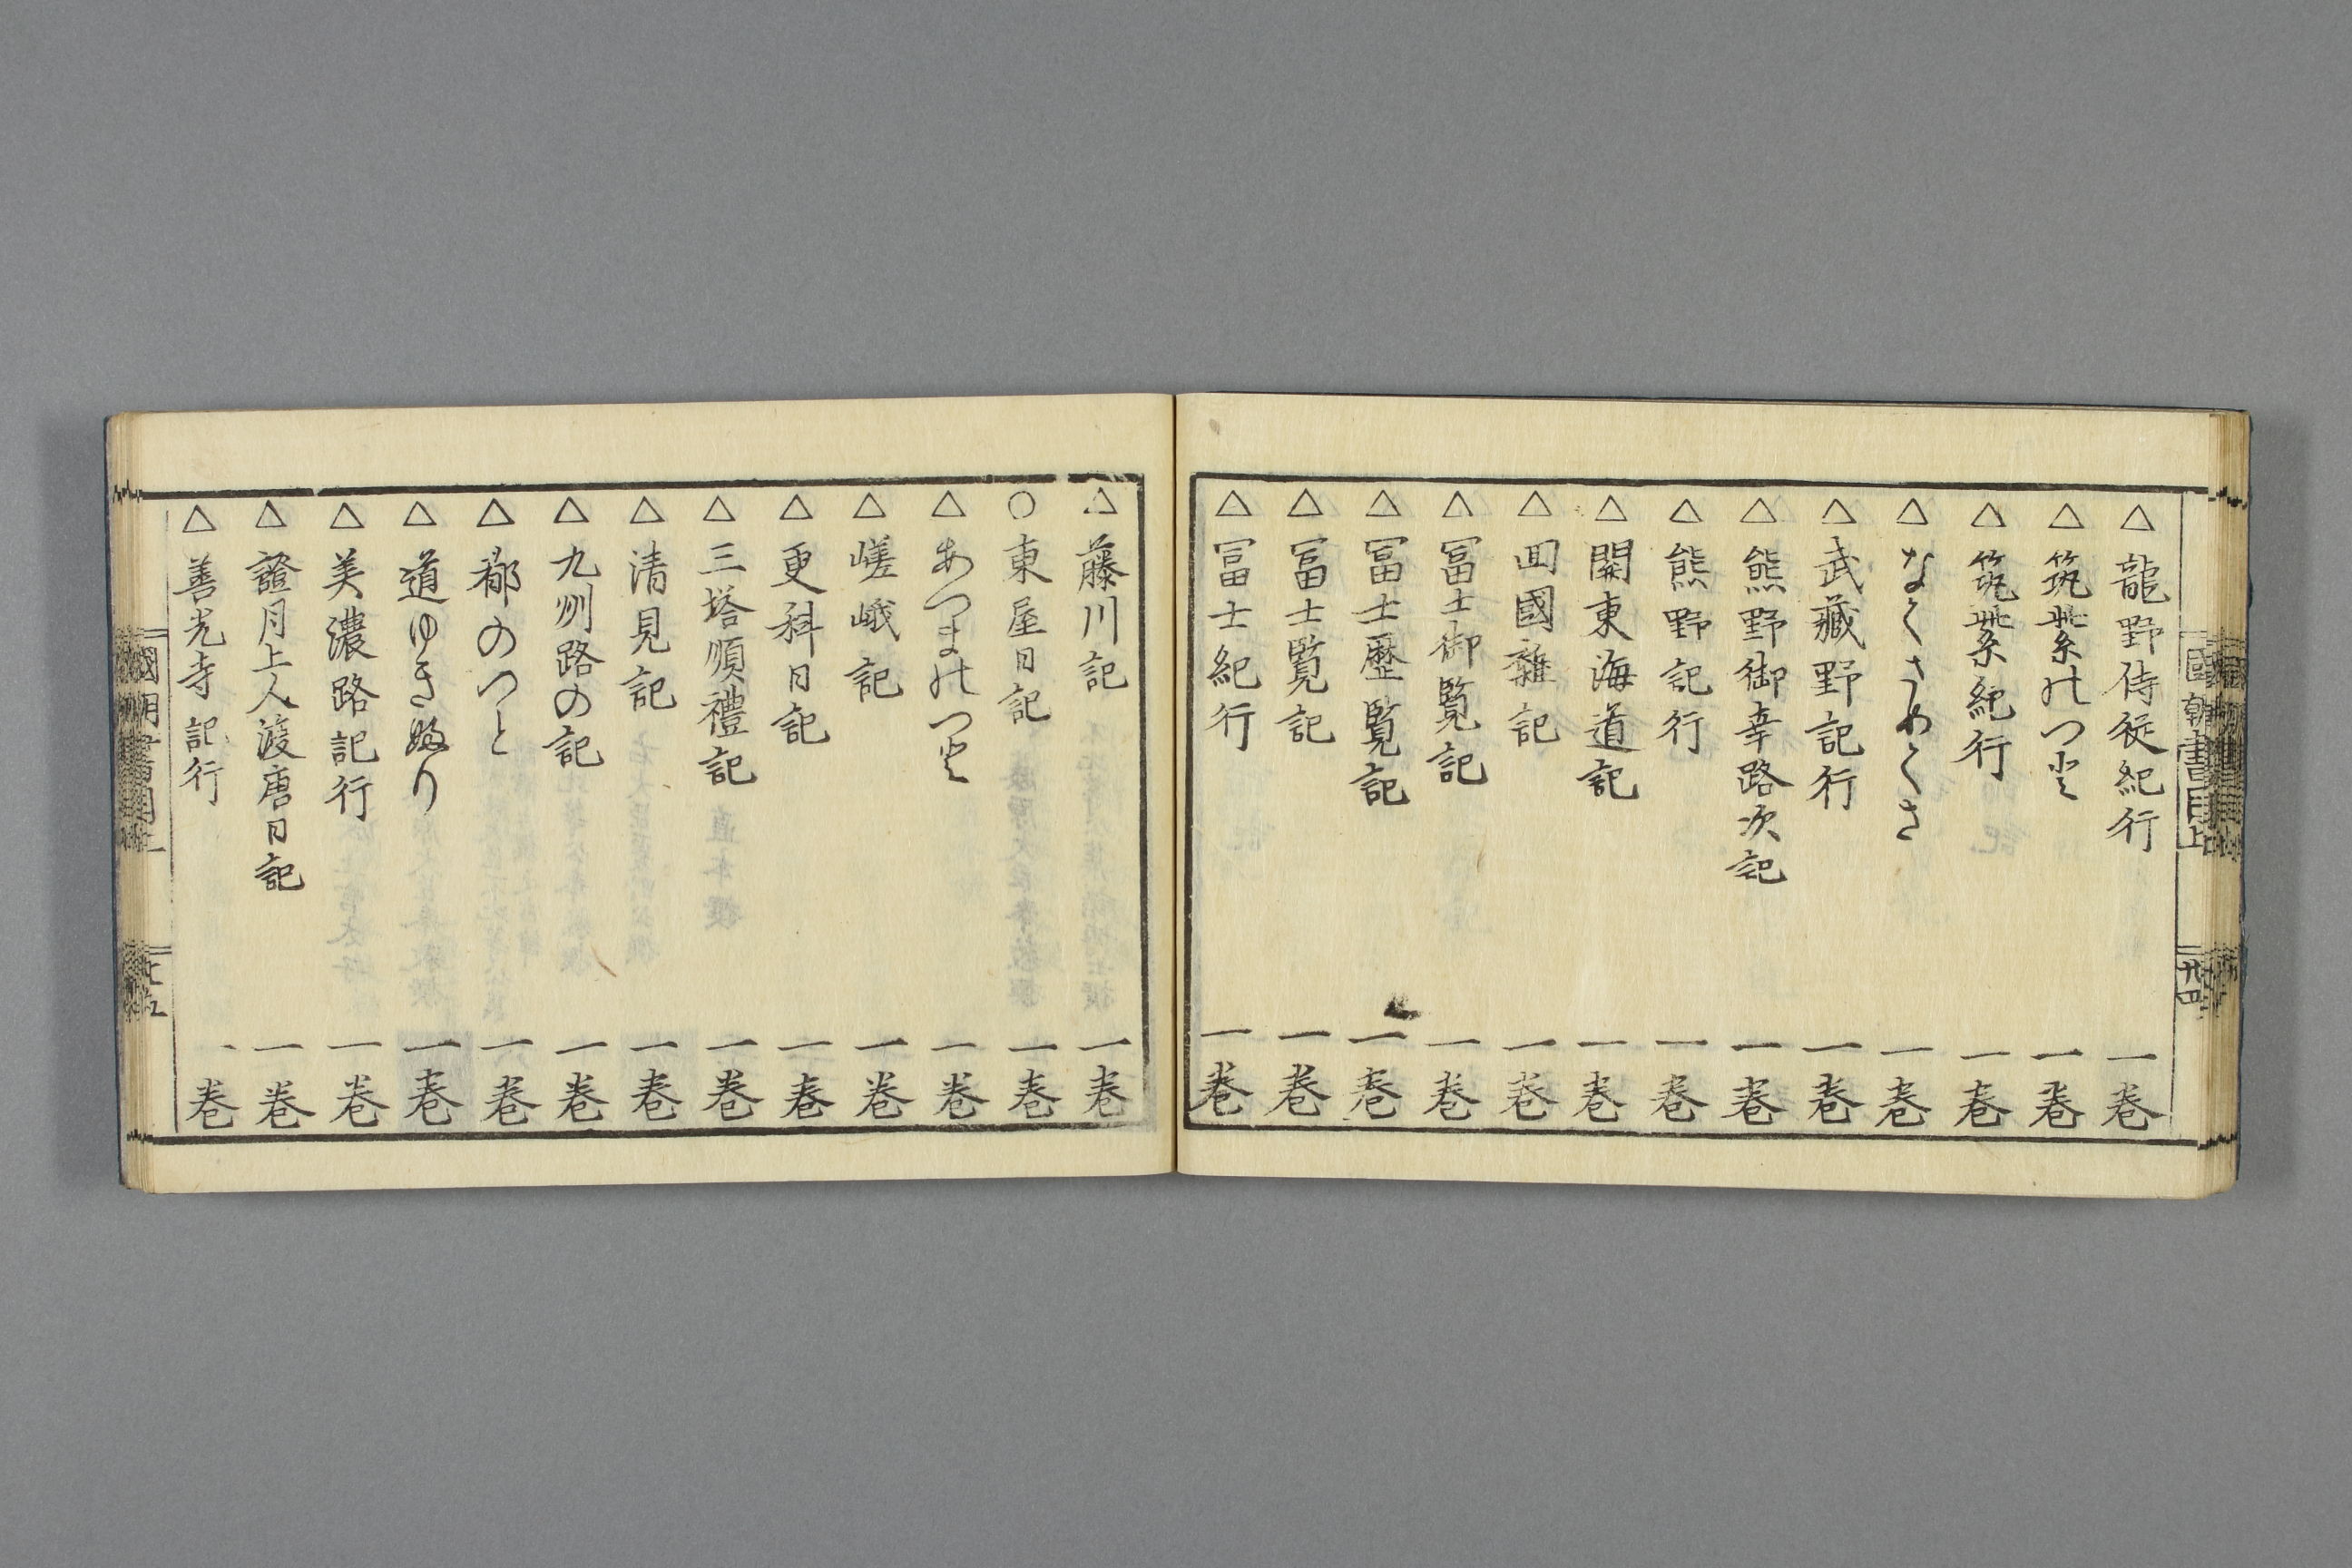 國朝書目上
廿四
△ 龍野侍従紀行 一巻
△ 筑紫のつと 一巻
△ 筑紫紀行 一巻
△ なくさめくさ 一巻
△ 武藏野記行 一巻
△ 熊野御幸路次記 一巻
△ 熊野記行 一巻
△ 関東海道記 一巻
△ 回國雜記 一巻
△ 冨士御覧記 一巻
△ 冨士歷覧記 一巻
△ 冨士覧記 一巻
△ 冨士紀行 一巻
△ 藤川記 一巻
○ 東屋日記 一巻
△ あつまのつと 一巻
△ 嵯峨記 一巻
△ 更科日記 一巻
△ 三塔順禮記 一巻
△ 清見記 一巻
△ 九州路の記 一巻
△ 都のつと 一巻
△ 道ゆきぶり 一巻
△ 美濃路記行 一巻
△ 證月上人渡唐日記 一巻
△ 善光寺記行 一巻